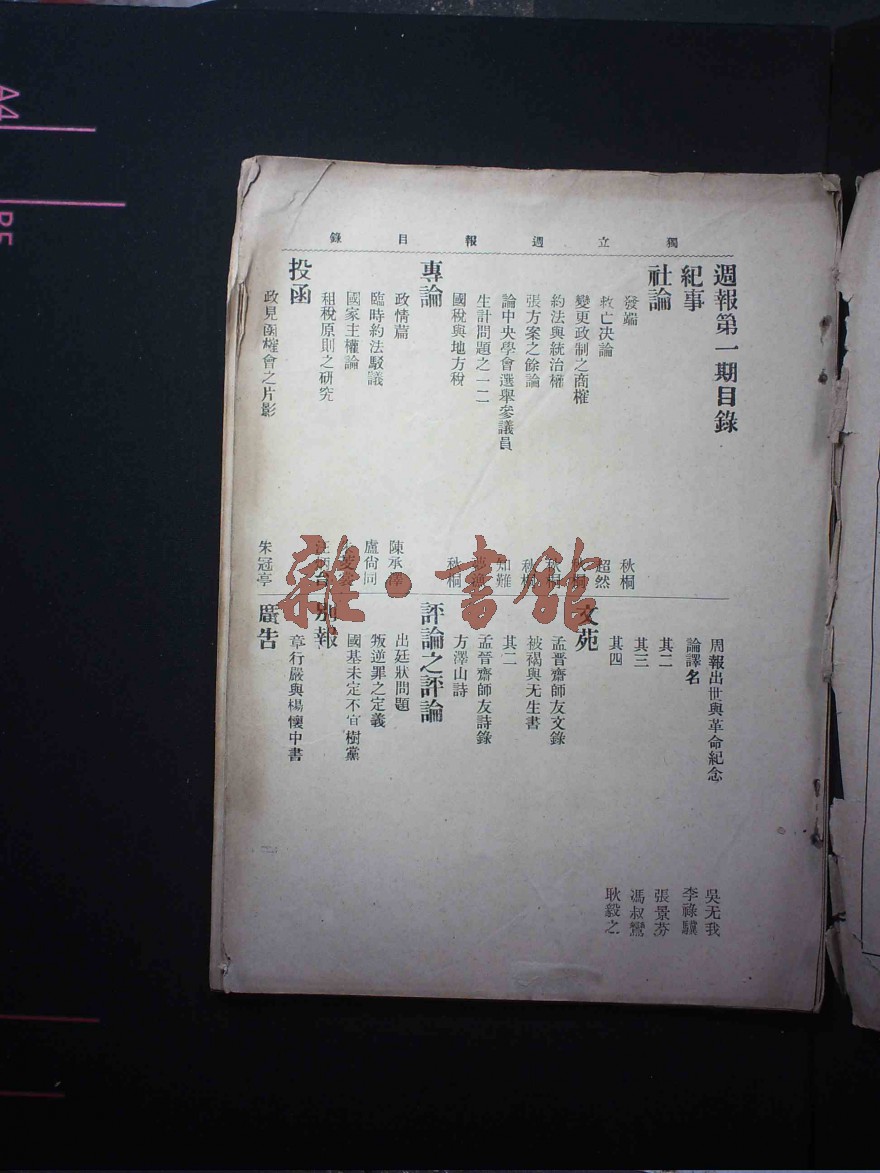 獨立週報目錄
週報第一期目錄
紀事
社論
發端 秋桐
救亡决論 超然
變更政制之商榷 秋桐
約法與統治權 秋桐
張方案之餘論 秋桐
論中央學會選舉參議員 知難
生計問題之一二
國稅與地方稅 秋桐
專論
政情篇 陳承澤
臨時約法駁議 盧尙同
國家主權論
租稅原則之研究 汪炳台
投函
政見商榷會之片影 朱冠亭
周報出世與革命紀念 吳无我
論譯名 李祿驥
其二 張景芬
其三 馮叔鸞
其四 耿毅之
文苑
孟晉齋師友文錄
被褐與无生書
其二
孟晉齋師友詩錄
方澤山詩
評論之評論
出廷狀問題
叛逆罪之定義
國基未定不宜樹黨
別報
章行嚴與楊懷中書
廣告
雜·書館
A4
B5